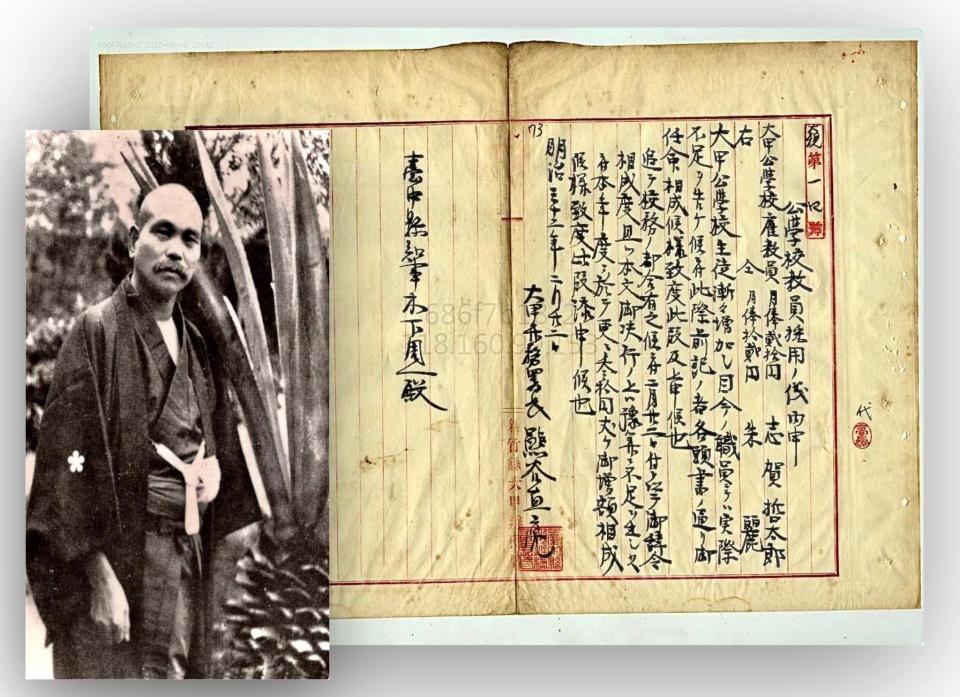 代
公學校教員採用ノ儀內申
大甲公學校雇教員 月俸貳拾円 志賀哲太郎
仝 月俸拾貳円 朱麗
右
大甲公學校生徒漸々增加シ目今ノ職員ニテハ實際
不足ヲ告ケ候ニ付此際前記ノ者各頭書ノ通リ御
任命相成候樣致度此段及上申候也
追テ校務ノ都合有之候ニ付二月廿二日付ヲ以テ御辞令
相成度且ツ本文御ノ上ハ豫算ニ不足ヲ生シ
本年度ニ於テ更ニ御增額相成
候樣致度此段添申候也
73
明治三十二年二月廿二日
大甲弁務署長 熊谷直亮
臺中縣知事木下周一殿